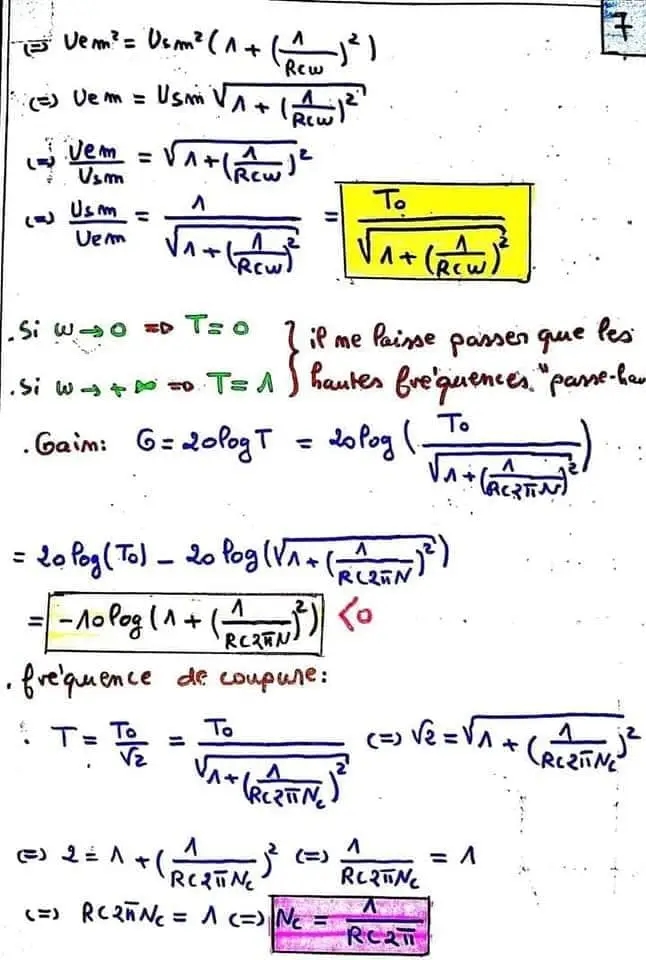 7
(=) Uem² = Usm² (1 + (1/RCω)²)
(=) Uem = Usm √(1 + (1/RCω)²)
(=) Uem/Usm = √(1 + (1/RCω)²)
(=) Usm/Uem = 1/√(1 + (1/RCω)²) = T₀/√(1 + (1/RCω)²)
. Si ω → 0 => T = 0 } il me laisse passer que les
. Si ω → +∞ => T = 1 } hautes fréquences. "passe-hau
. Gain: G = 20 log T = 20 log (T₀/√(1 + (1/RC2πN)²))
= 20 log(T₀) - 20 log(√(1 + (1/RC2πN)²))
= -10 log(1 + (1/RC2πN)²) <0
. fréquence de coupure:
: T = T₀/√2 = T₀/√(1 + (1/RC2πNc)²) (=) √2 = √(1 + (1/RC2πNc)²)
(=) 2 = 1 + (1/RC2πNc)² (=) 1/RC2πNc = 1
(=) RC2πNc = 1 (=) Nc = 1/RC2π